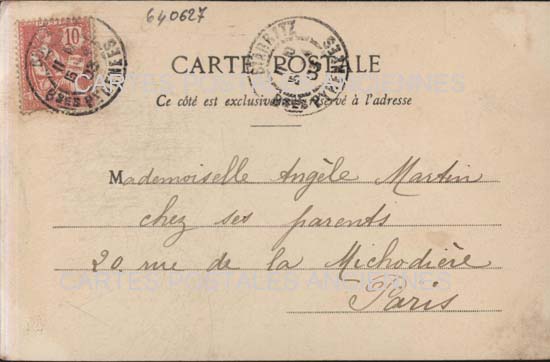 640627
10
BIARRITZ
BSES PYRENEES
CARTE POSTALE
Ce côté est exclusivement réservé à l'adresse
Mademoiselle Angèle Martin
chez ses parents
20 rue de la Michodière
Paris
CARTES POSTALES ANCIENNES
CARTES POSTALES ANCIENNES